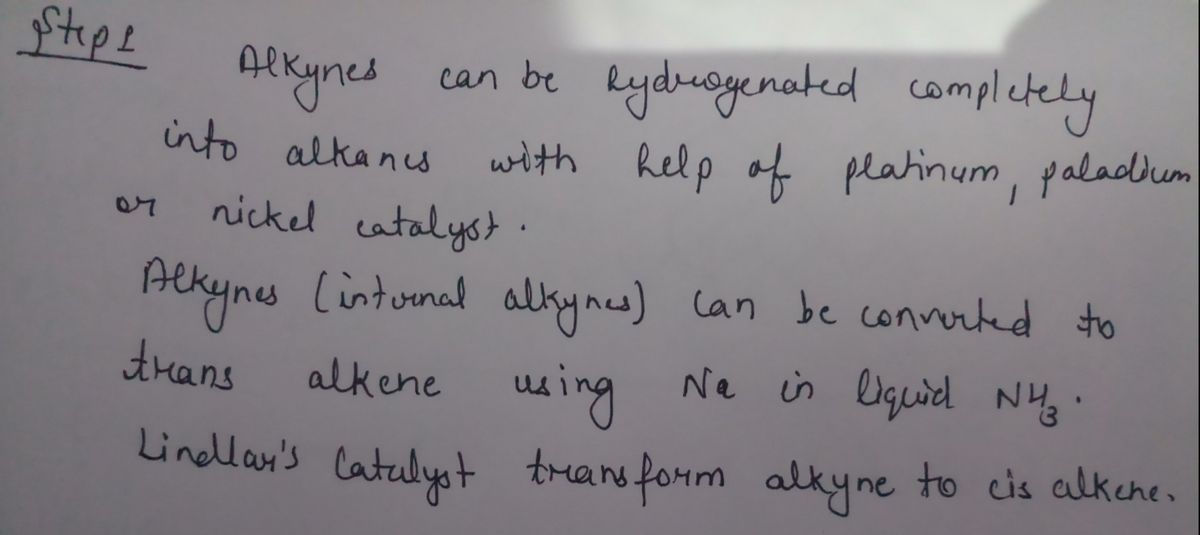 Step 1
Alkynes can be hydrogenated completely
into alkanes with help of platinum, paladium
or nickel catalyst.
Alkynes (internal alkynes) can be converted to
trans alkene using Na in liquid NH3.
Lindlar's Catalyst transform alkyne to cis alkene.